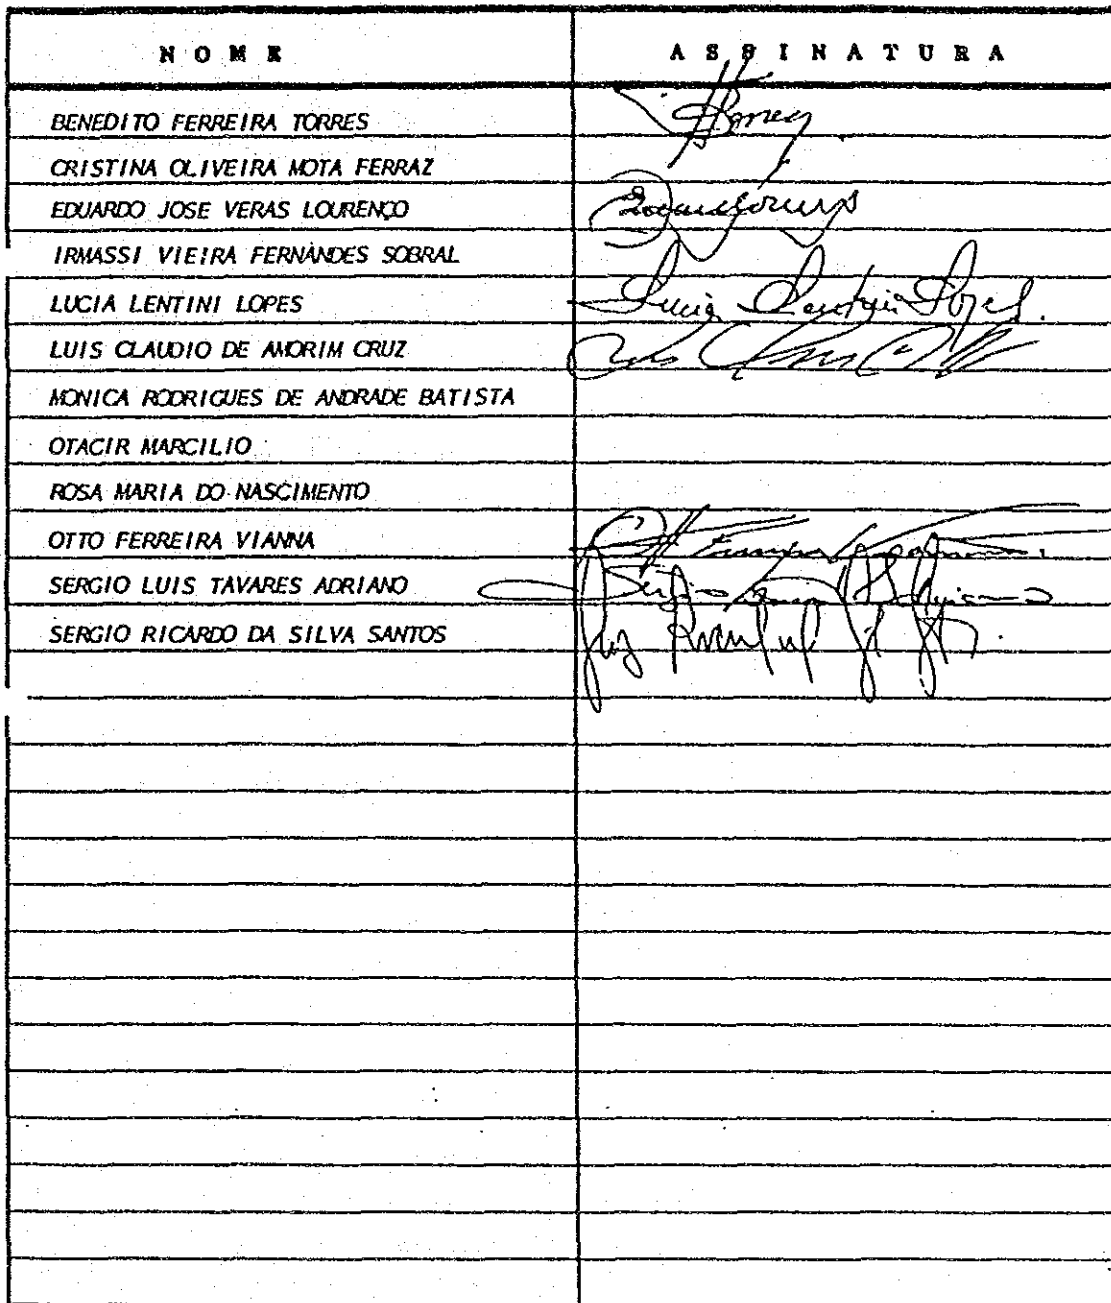 NOME ASSINATURA
BENEDITO FERREIRA TORRES
CRISTINA OLIVEIRA MOTA FERRAZ
EDUARDO JOSE VERAS LOURENÇO
IRMASSI VIEIRA FERNANDES SOBRAL
LUCIA LENTINI LOPES Lucia Lentini Lopes
LUIS CLAUDIO DE AMORIM CRUZ
MONICA RODRIGUES DE ANDRADE BATISTA
OTACIR MARCILIO
ROSA MARIA DO NASCIMENTO
OTTO FERREIRA VIANNA
SERGIO LUIS TAVARES ADRIANO
SERGIO RICARDO DA SILVA SANTOS